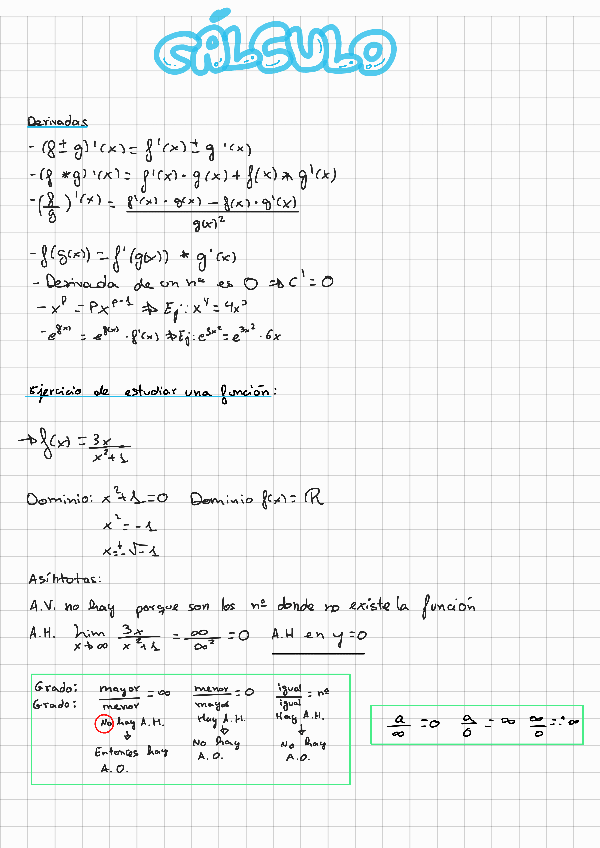 CÁLCULO
Derivadas
- (f ± g)'(x) = f'(x) ± g'(x)
- (f * g)'(x) = f'(x) · g(x) + f(x) * g'(x)
- (f/g)'(x) = f'(x) · g(x) - f(x) · g'(x) / g(x)²
- f(g(x)) = f'(g(x)) * g'(x)
- Derivada de un nº es 0 ⇒ C' = 0
- x^p = Px^(p-1) ⇒ Ej: x⁴ = 4x³
- e^f(x) = e^f(x) · f'(x) ⇒ Ej: e^3x² = e^3x² · 6x
Ejercicio de estudiar una función:
→ f(x) = 3x / x²+1
Dominio: x²+1=0 Dominio f(x) = ℝ
x² = -1
x = ±√-1
Asíntotas:
A.V. no hay porque son los nº donde no existe la función
A.H. lim x→∞ 3x / x²+1 = ∞ / ∞² = 0 A.H en y=0
Grado: mayor / menor = ∞ menor / mayor = 0 igual / igual = nº
Grado:
No hay A.H. Hay A.H. Hay A.H.
↓ ↓ ↓
Entonces hay No hay No hay
A.O. A.O. A.O.
a/∞ = 0 a/0 = ∞ ∞/0 = ∞